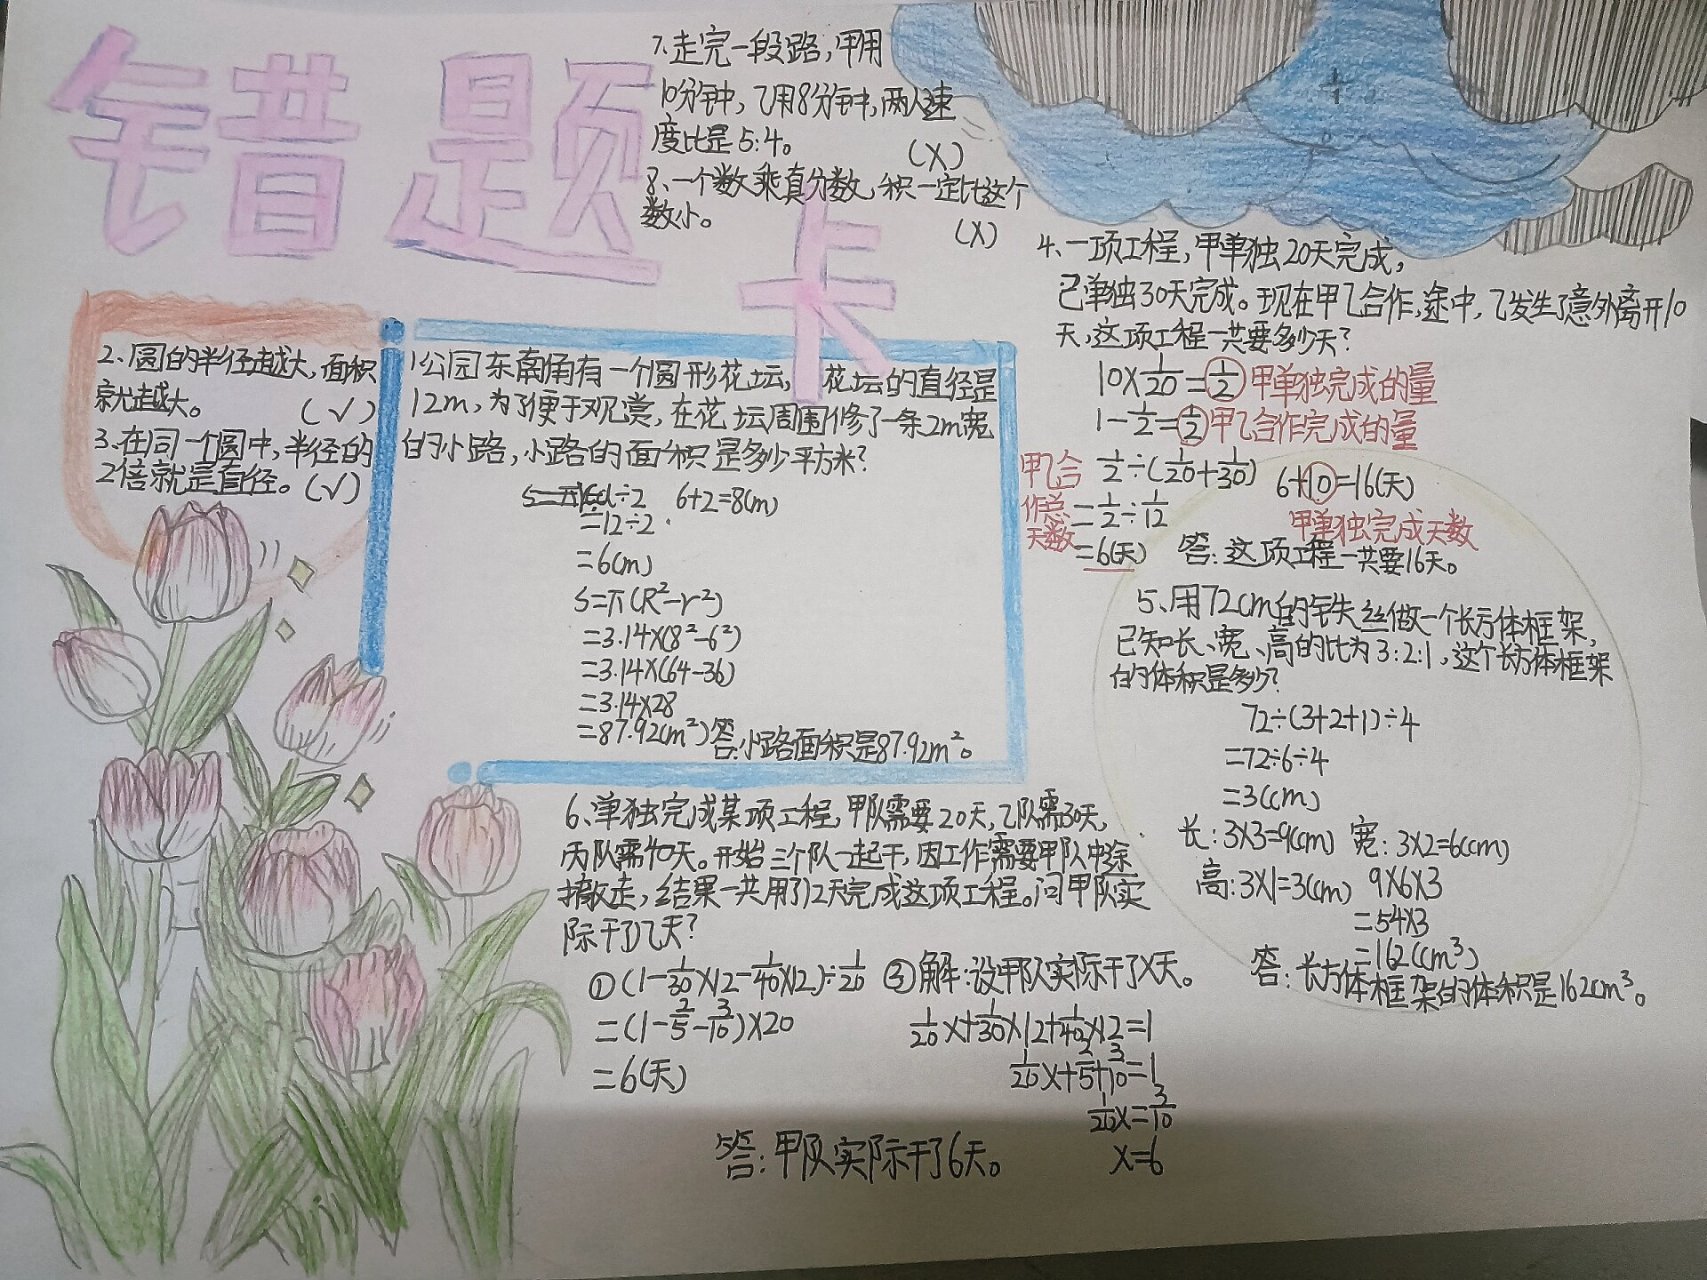 错题卡
7、走完一段路，甲用
10分钟，乙用8分钟，两人速
度比是5:4。 (X)
8、一个数乘真分数，积一定比这个
数小。 (X)
2、圆的半径越大，面积
就越大。 (√)
3、在同一个圆中，半径的
2倍就是直径。(√)
1公园东南角有一个圆形花坛，花坛的直径是
12m，为了便于观赏，在花坛周围修了一条2m宽
的小路，小路的面积是多少平方米？
d÷2 6+2=8(m)
=12÷2
=6(m)
S=π(R²-r²)
=3.14×(8²-6²)
=3.14×(64-36)
=3.14×28
=87.92(m²)答:小路面积是87.92m²。
4、一项工程，甲单独20天完成，
已单独30天完成。现在甲乙合作，途中，乙发生了意外离开10
天，这项工程一共要多少天？
10×1/20=1/2 甲单独完成的量
1-1/2=1/2 甲乙合作完成的量
甲乙合作总天数
1/2÷(1/20+1/30)
=1/2÷1/12
=6(天)
6+10=16(天)
甲单独完成天数
答：这项工程一共要16天。
5、用72cm的铁丝做一个长方体框架，
已知长、宽、高的比为3:2:1，这个长方体框架
的体积是多少？
72÷(3+2+1)÷4
=72÷6÷4
=3(cm)
长:3×3=9(cm) 宽:3×2=6(cm)
高:3×1=3(cm) 9×6×3
=54×3
=162(cm³)
答：长方体框架的体积是162cm³。
6、单独完成某项工程，甲队需要20天，乙队需30天，
丙队需40天。开始三个队一起干，因工作需要甲队中途
撤走，结果一共用了12天完成这项工程。问甲队实
际干了几天？
①(1-1/30×12-1/40×12)÷1/20
=(1-2/5-3/10)×20
=6(天)
②解：设甲队实际干了X天。
1/20X+1/30×12+1/40×12=1
1/20X+2/5+3/10=1
1/20X=3/10
X=6
答：甲队实际干了6天。